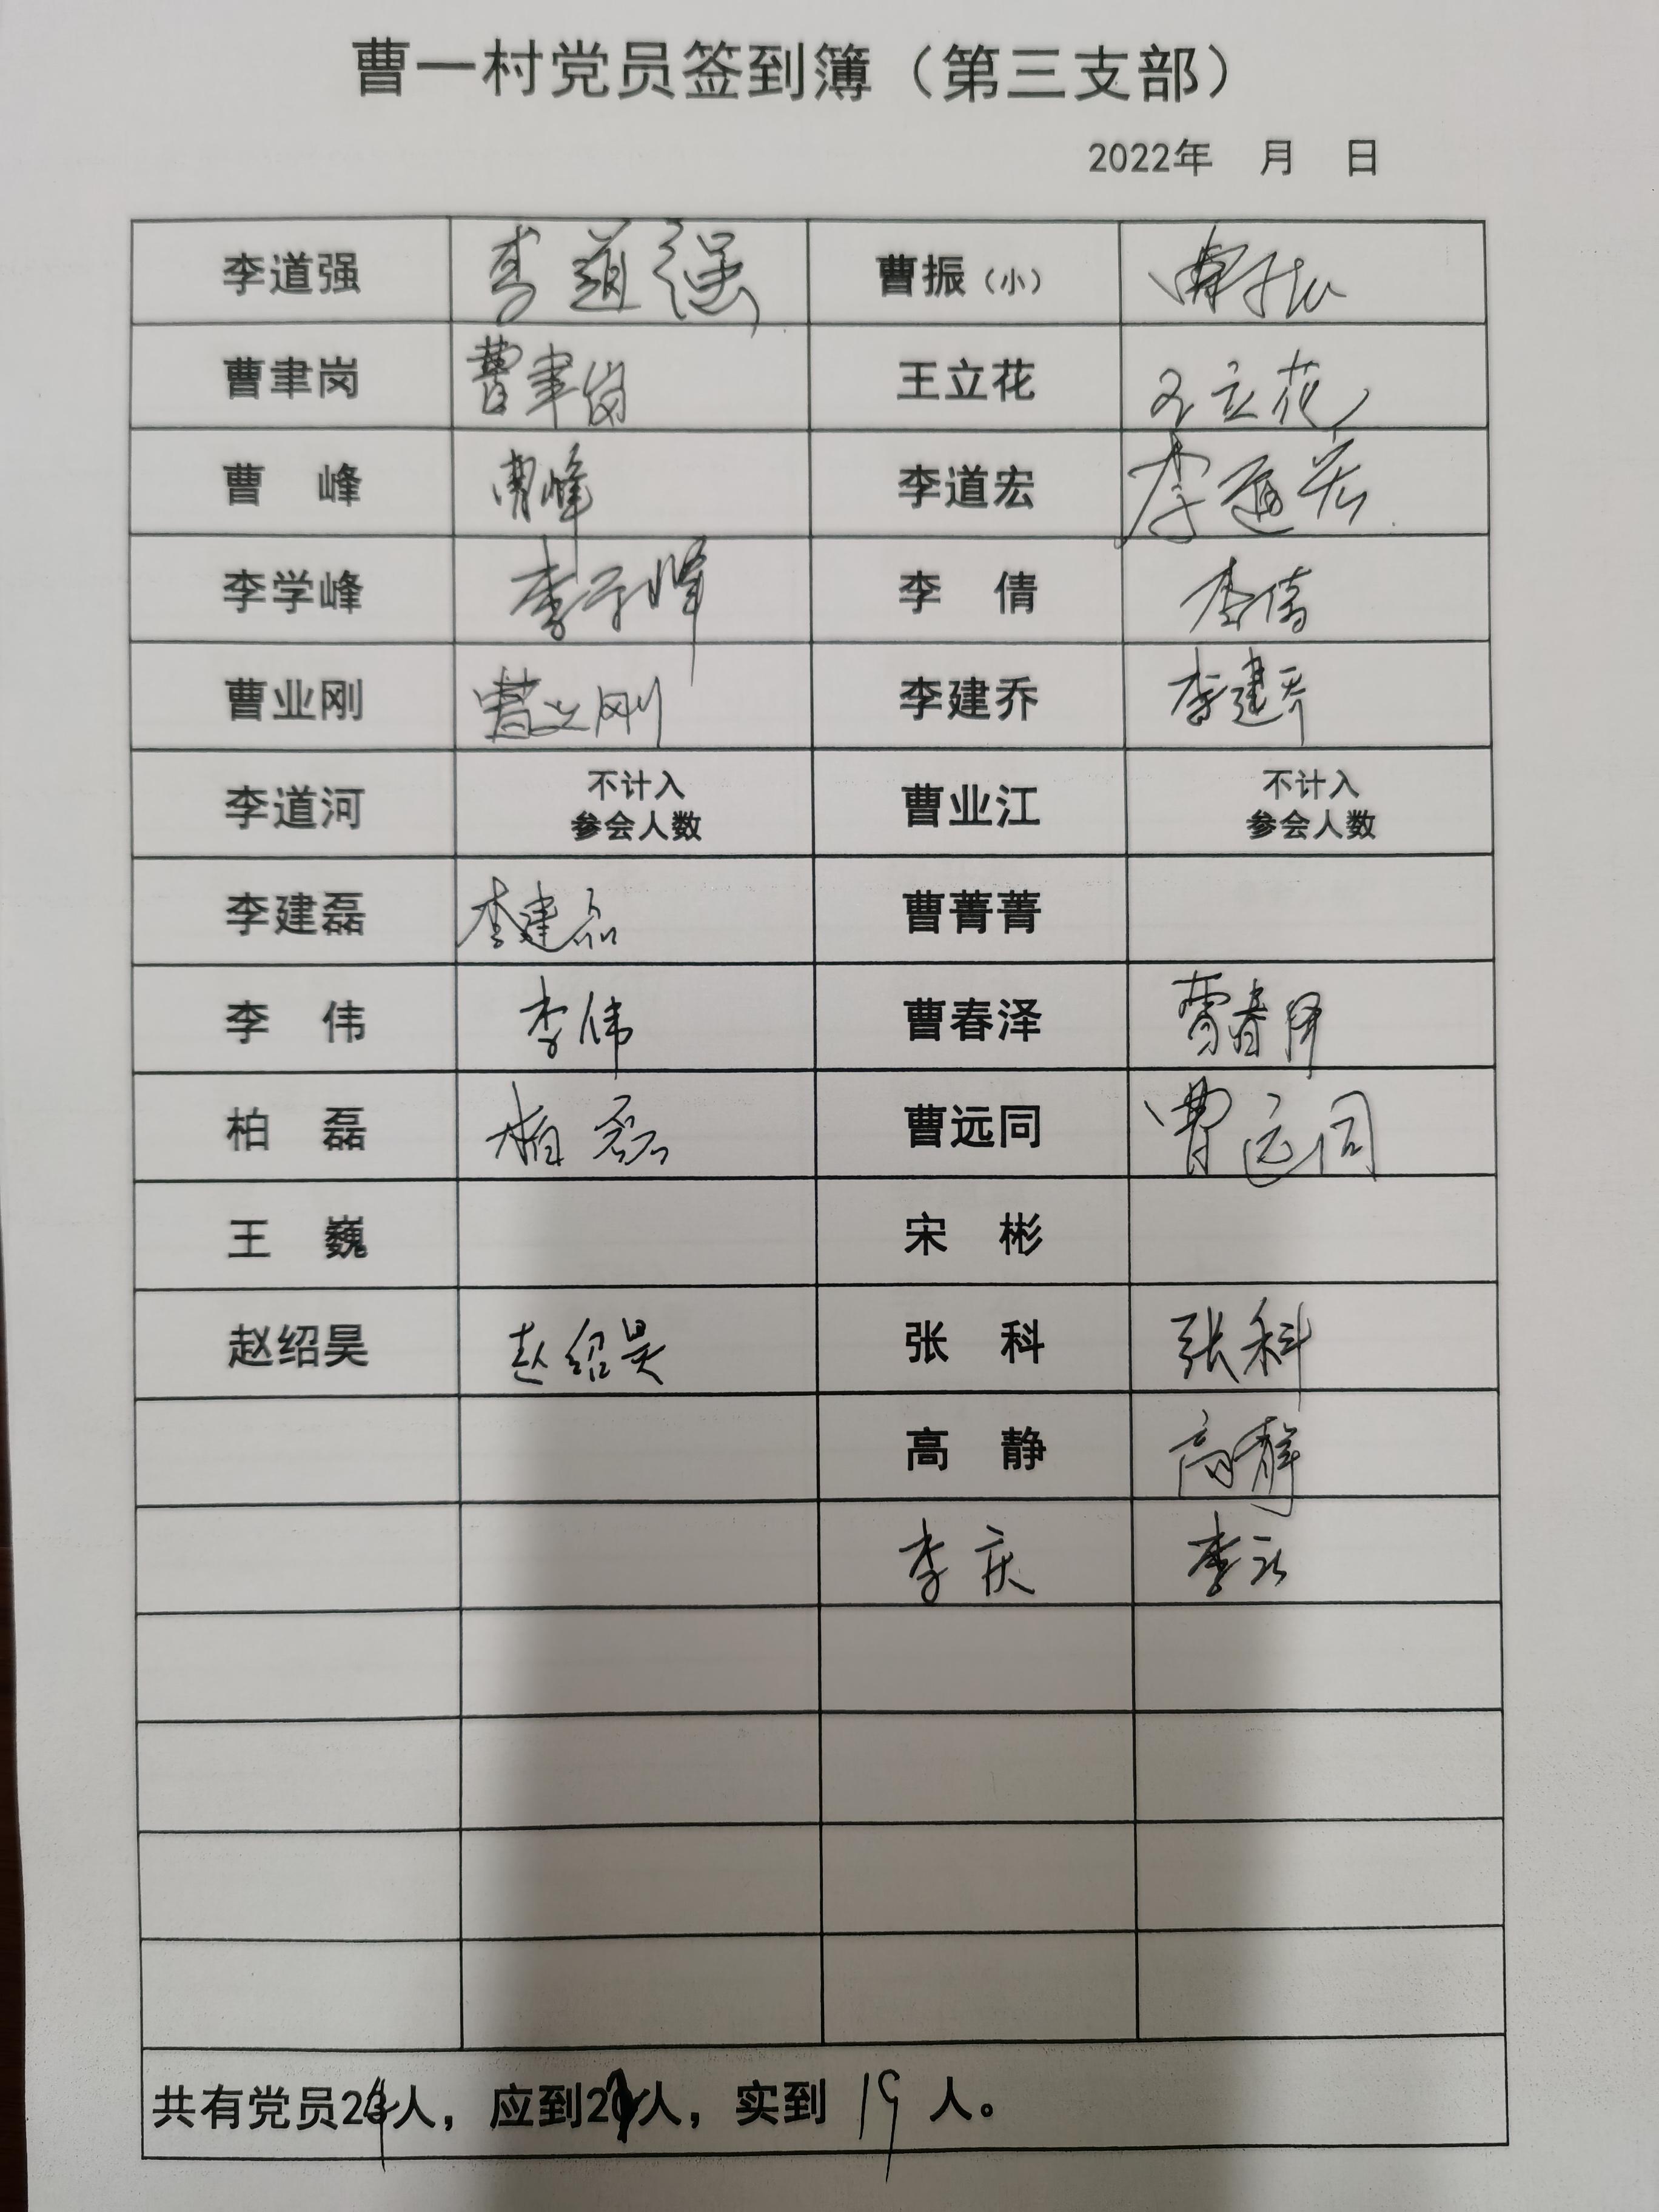 曹一村党员签到簿（第三支部）
2022年 月 日
李道强 李道强 曹振（小） 曹振
曹聿岗 曹聿岗 王立花 王立花
曹 峰 曹峰 李道宏 李道宏
李学峰 李学峰 李 倩 李倩
曹业刚 曹业刚 李建乔 李建乔
李道河 不计入 曹业江 不计入
参会人数 参会人数
李建磊 李建磊 曹菁菁
李 伟 李伟 曹春泽 曹春泽
柏 磊 柏磊 曹远同 曹远同
王 巍 宋 彬
赵绍昊 赵绍昊 张 科 张科
高 静 高静
李庆 李
共有党员24人，应到21人，实到 19 人。